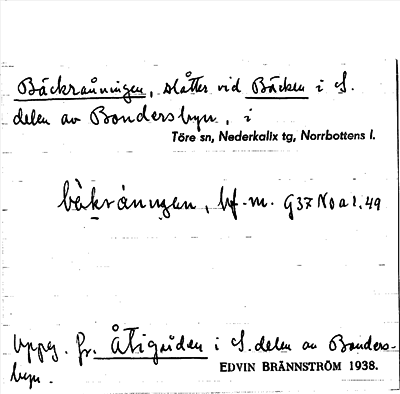 Bäckraåningen, slåtter vid Bäcken i S.
delen av Bondersbyn, i
Töre sn, Nederkalix tg, Norrbottens l.
bf. m. G37 No a 1. 49
Uppg. fr. Åtigården i S. delen av Bonders-
byn.
EDVIN BRÄNNSTRÖM 1938.